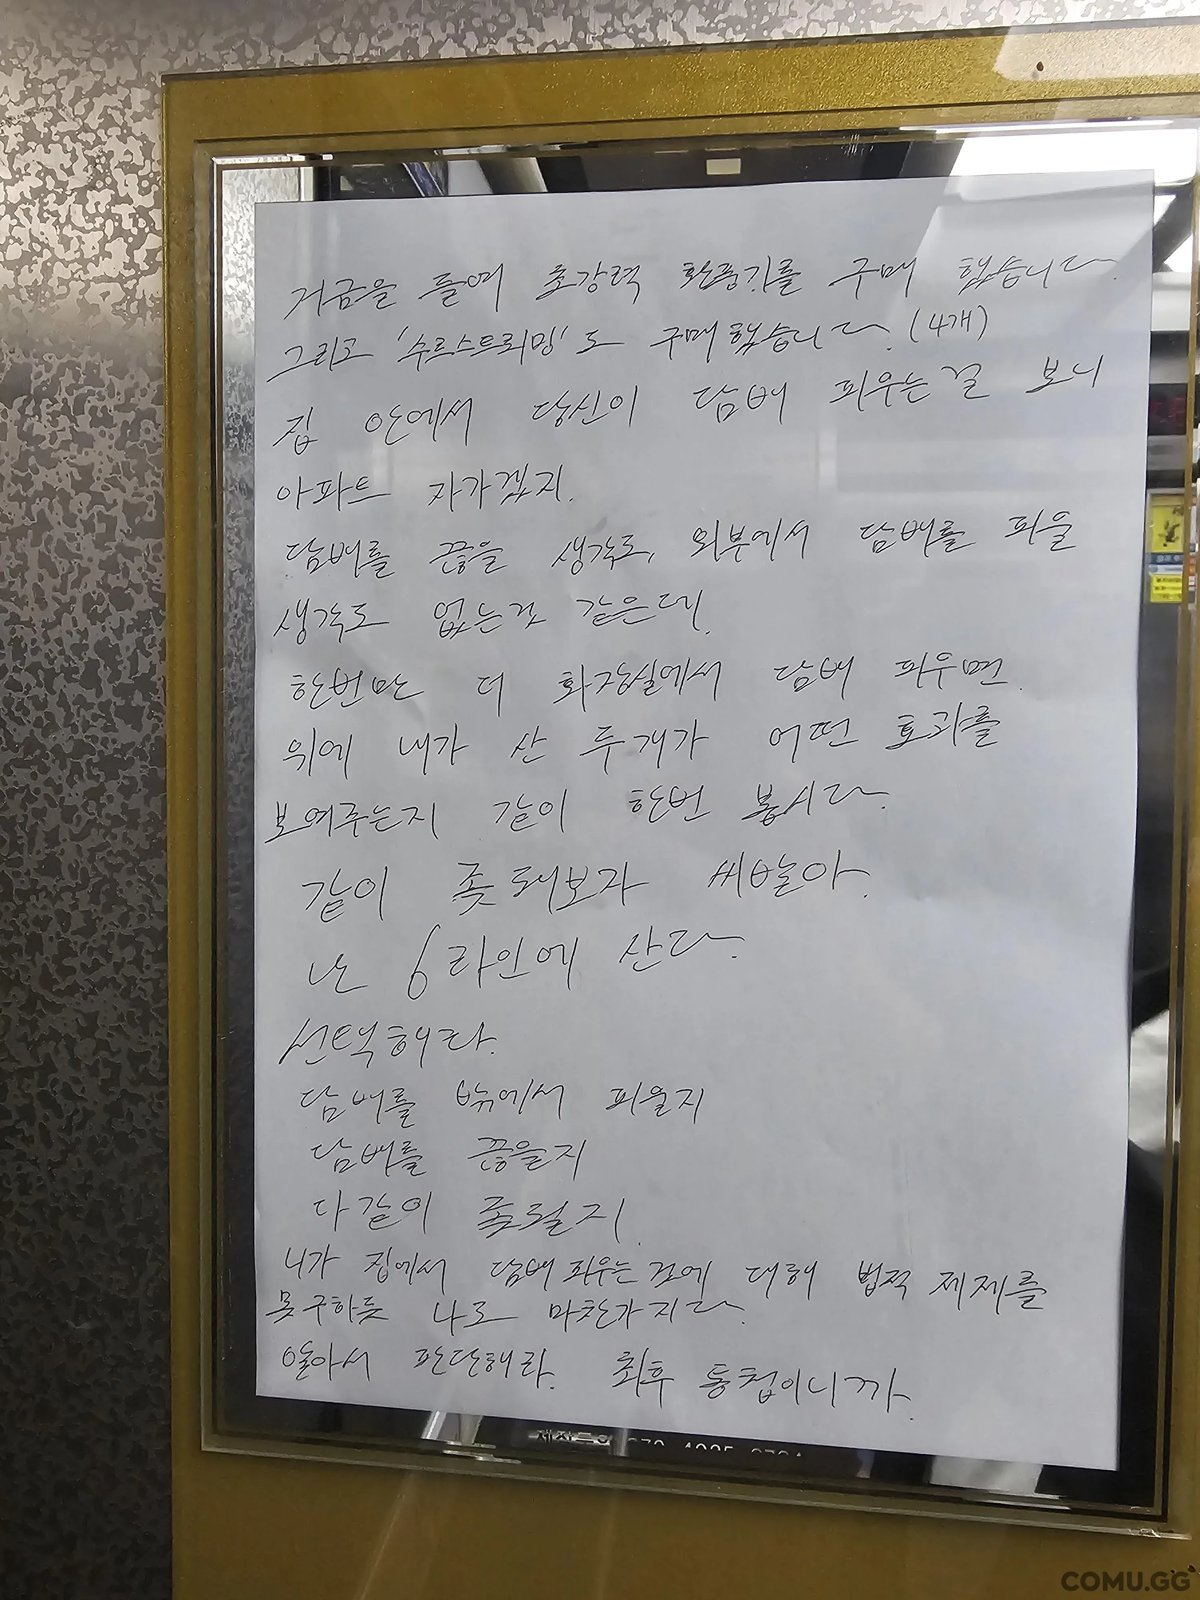 거금을 들여 초강력 환풍기를 구매 했습니다.
그리고 '수르스트뢰밍'도 구매했습니다. (4개)
집 안에서 당신이 담배 피우는걸 보니
아파트 자가겠지.
담배를 끊을 생각도, 외부에서 담배를 피울
생각도 없는것 같은데.
한번만 더 화장실에서 담배 피우면
위에 내가 산 두개가 어떤 효과를
보여주는지 같이 한번 봅시다.
같이 좆돼보자 씨발아.
난 6라인에 산다.
선택해라.
담배를 밖에서 피울지
담배를 끊을지
다같이 좆될지.
니가 집에서 담배 피우는 것에 대해 법적 제제를
못구하듯 나도 마찬가지다.
알아서 판단해라. 최후 통첩이니까.
COMU.GG